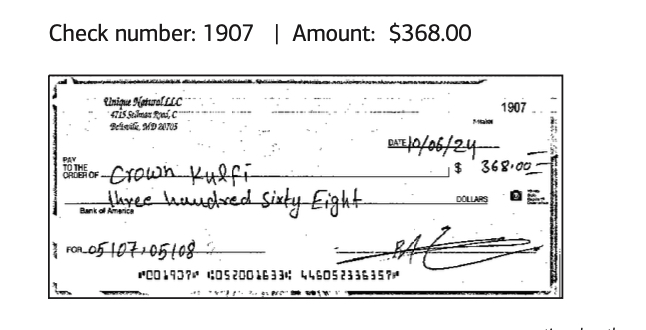 Check number: 1907 | Amount: $368.00
Unique Natural LLC
4715 Sellman Road, C
Beltsville, MD 20705
1907
DATE 10/06/24
PAY
TO THE
ORDER OF Crown Kulfi $ 368.00
three hundred Sixty Eight DOLLARS
Bank of America
FOR 05107,05108